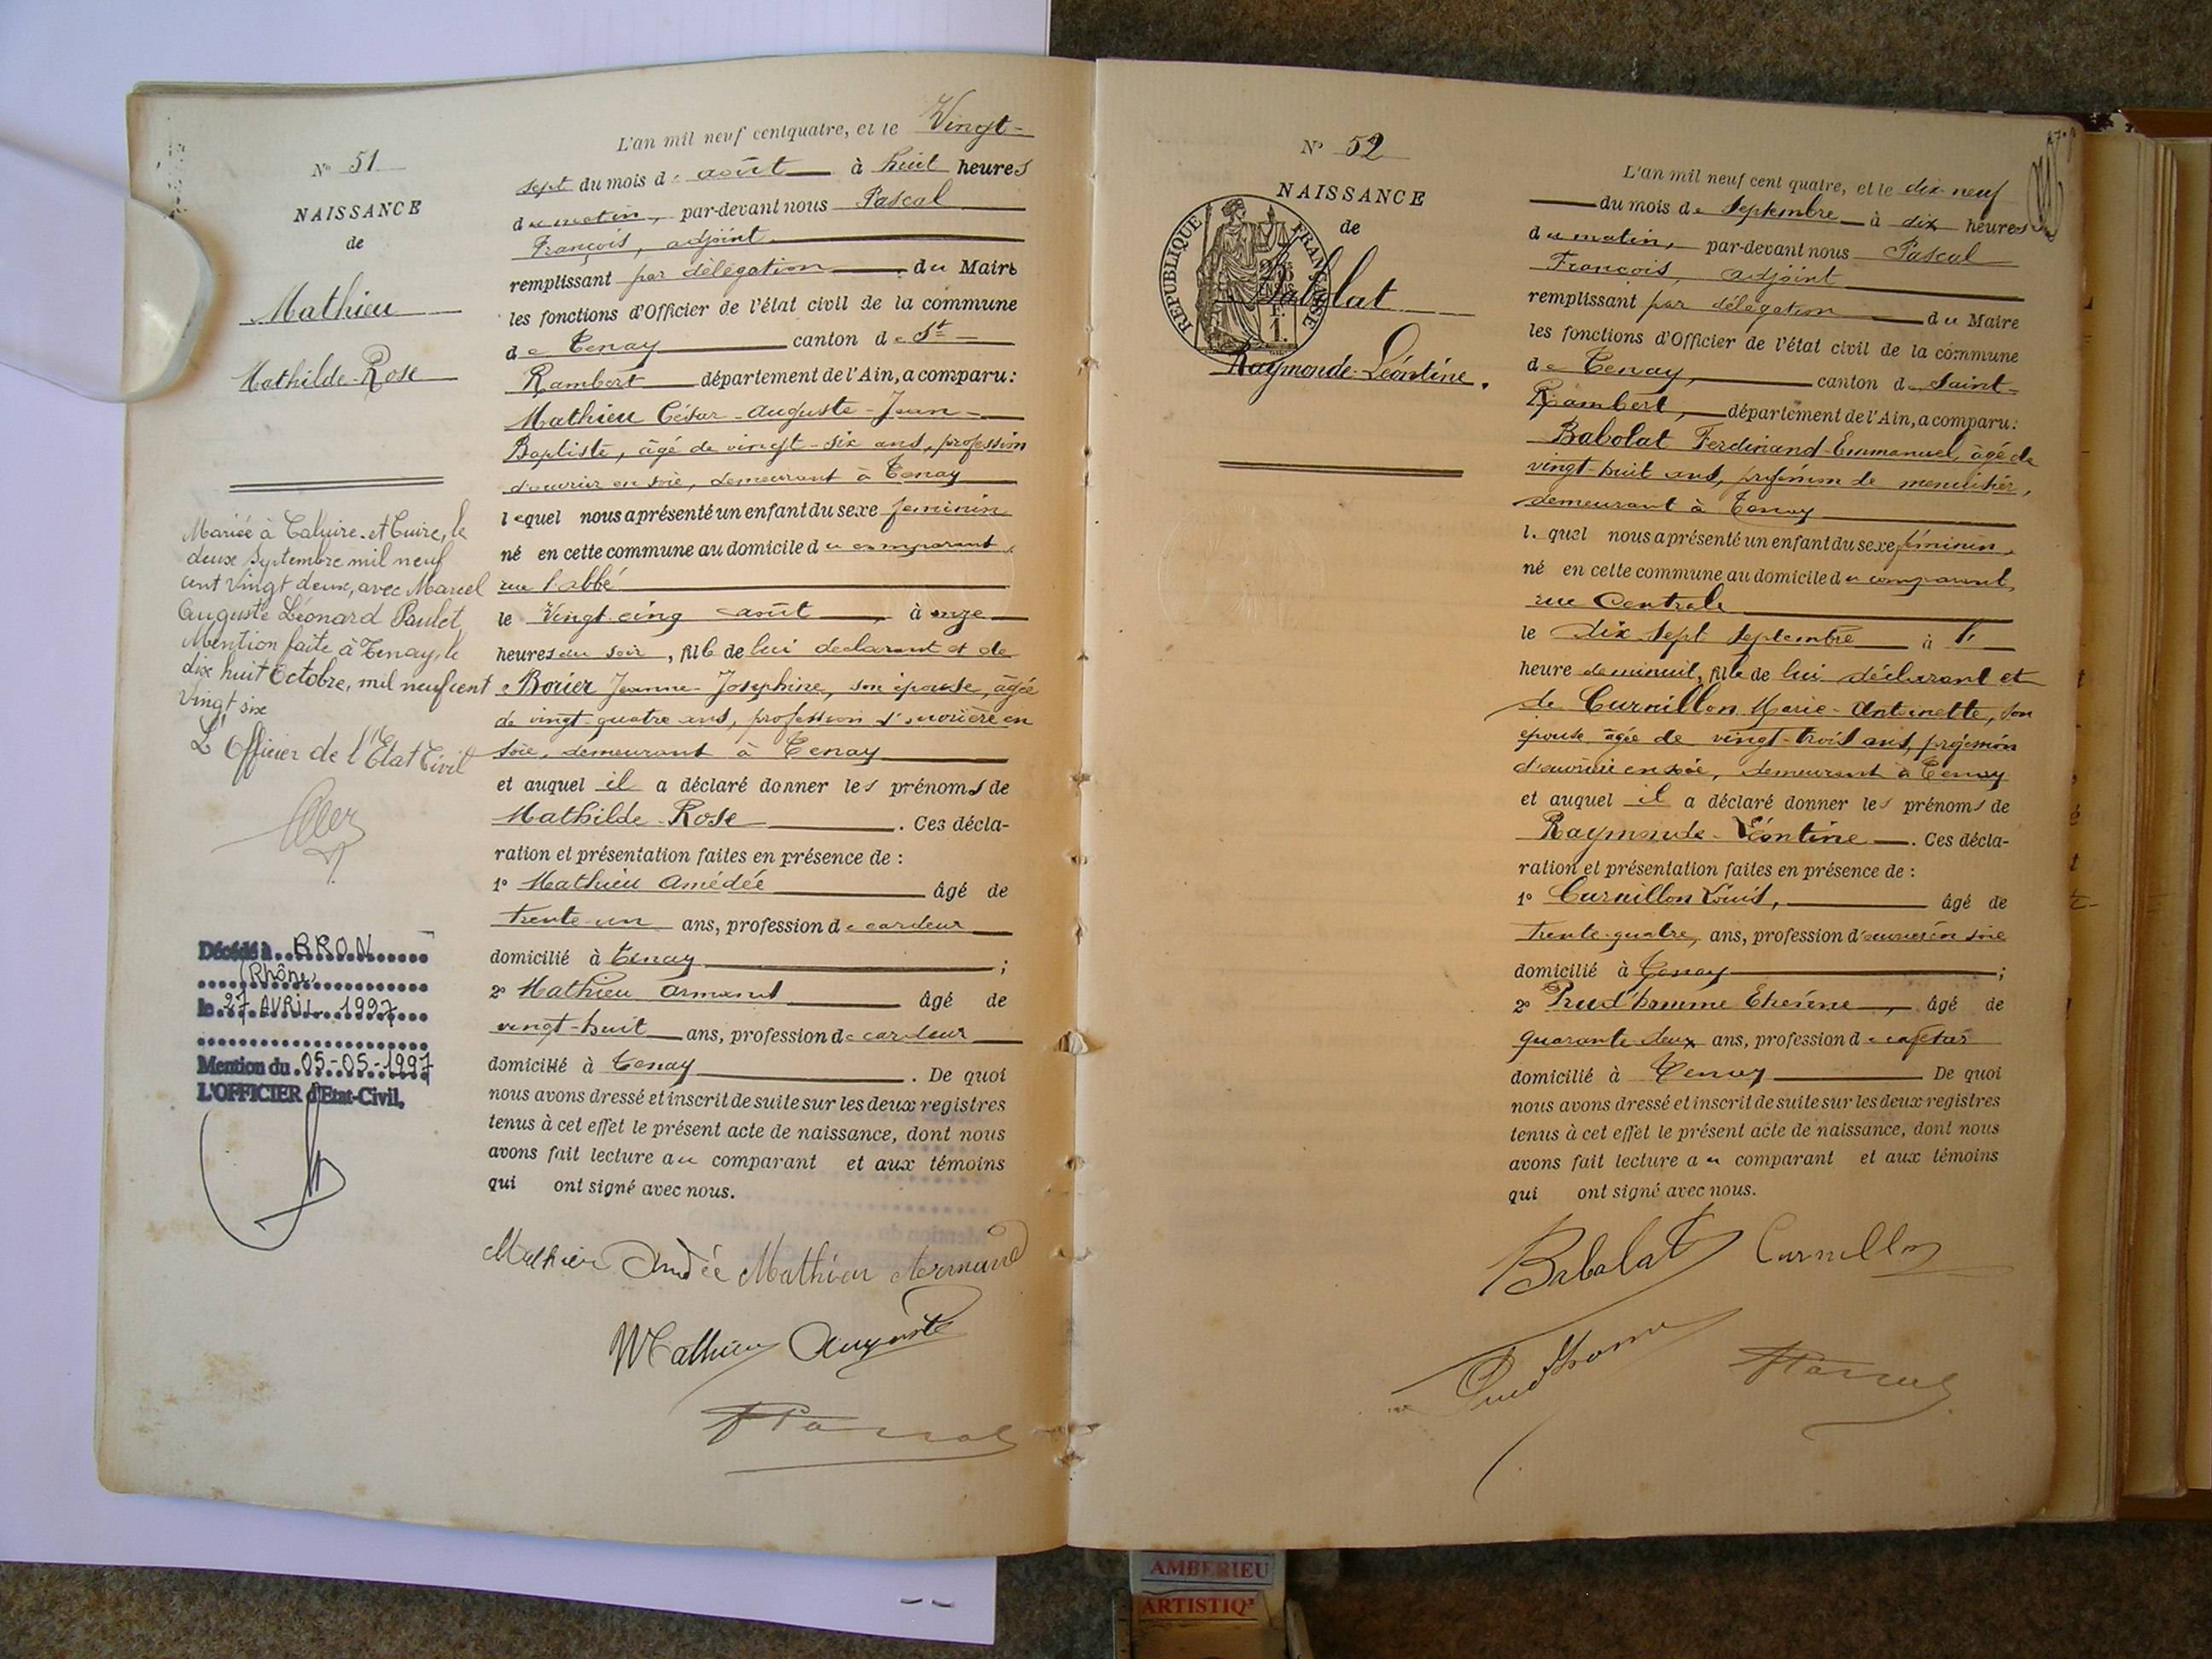 N° 51
NAISSANCE
de
Mathieu
Mathilde-Rose
Mariée à Caluire-et-Cuire, le
deux Septembre mil neuf
cent vingt deux, avec Marcel
Auguste Léonard Paulet
Mention faite à Tenay, le
dix huit Octobre, mil neuf cent
vingt six
L'Officier de l'Etat Civil
Décédé à BRON
(Rhône)
le 27 AVRIL 1997
Mention du 05-05-1997
L'OFFICIER d'Etat-Civil,
L'an mil neuf cent quatre, et le Vingt-
sept du mois de août à huit heures
du matin, par-devant nous Pascal
François, adjoint
remplissant par délégation du Maire
les fonctions d'Officier de l'état civil de la commune
de Tenay canton de St
Rambert département de l'Ain, a comparu :
Mathieu César-Auguste-Jean-
Baptiste, âgé de vingt-six ans, profession
d'ouvrier en soie, demeurant à Tenay
lequel nous a présenté un enfant du sexe féminin
né en cette commune au domicile du comparant,
rue l'abbé
le Vingt cinq août, à onze
heures du soir, fille de lui déclarant et de
Borier Jeanne-Joséphine, son épouse, âgée
de vingt-quatre ans, profession d'ouvrière en
soie, demeurant à Tenay
et auquel il a déclaré donner les prénoms de
Mathilde-Rose. Ces décla-
ration et présentation faites en présence de :
1° Mathieu Amédée âgé de
trente-un ans, profession de cardeur
domicilié à Tenay ;
2° Mathieu Armand âgé de
vingt-huit ans, profession de cardeur
domicilié à Tenay. De quoi
nous avons dressé et inscrit de suite sur les deux registres
tenus à cet effet le présent acte de naissance, dont nous
avons fait lecture au comparant et aux témoins
qui ont signé avec nous.
Mathieu Amédée Mathieu Armand
Mathieu Auguste
FPascal
N° 52
NAISSANCE
de
Babolat
Raymonde-Léontine.
RÉPUBLIQUE FRANÇAISE
L'an mil neuf cent quatre, et le dix-neuf
du mois de Septembre à dix heures
du matin, par-devant nous Pascal
François, adjoint
remplissant par délégation du Maire
les fonctions d'Officier de l'état civil de la commune
de Tenay, canton de Saint-
Rambert, département de l'Ain, a comparu :
Babolat Ferdinand-Emmanuel, âgé de
vingt-huit ans, profession de menuisier,
demeurant à Tenay
lequel nous a présenté un enfant du sexe féminin,
né en cette commune au domicile du comparant,
rue Centrale
le dix sept septembre à l'
heure de minuit, fille de lui déclarant et
de Curnillon Marie-Antoinette, son
épouse, âgée de vingt-trois ans, profession
d'ouvrière en soie, demeurant à Tenay
et auquel il a déclaré donner les prénoms de
Raymonde-Léontine. Ces décla-
ration et présentation faites en présence de :
1° Curnillon Louis, âgé de
trente-quatre, ans, profession d'ouvrier en soie
domicilié à Tenay ;
2° Prud'homme Etienne, âgé de
quarante deux ans, profession de cafetier
domicilié à Tenay De quoi
nous avons dressé et inscrit de suite sur les deux registres
tenus à cet effet le présent acte de naissance, dont nous
avons fait lecture au comparant et aux témoins
qui ont signé avec nous.
Babolat Curnillon
Prudhomme FPascal
AMBERIEU
ARTISTIQ